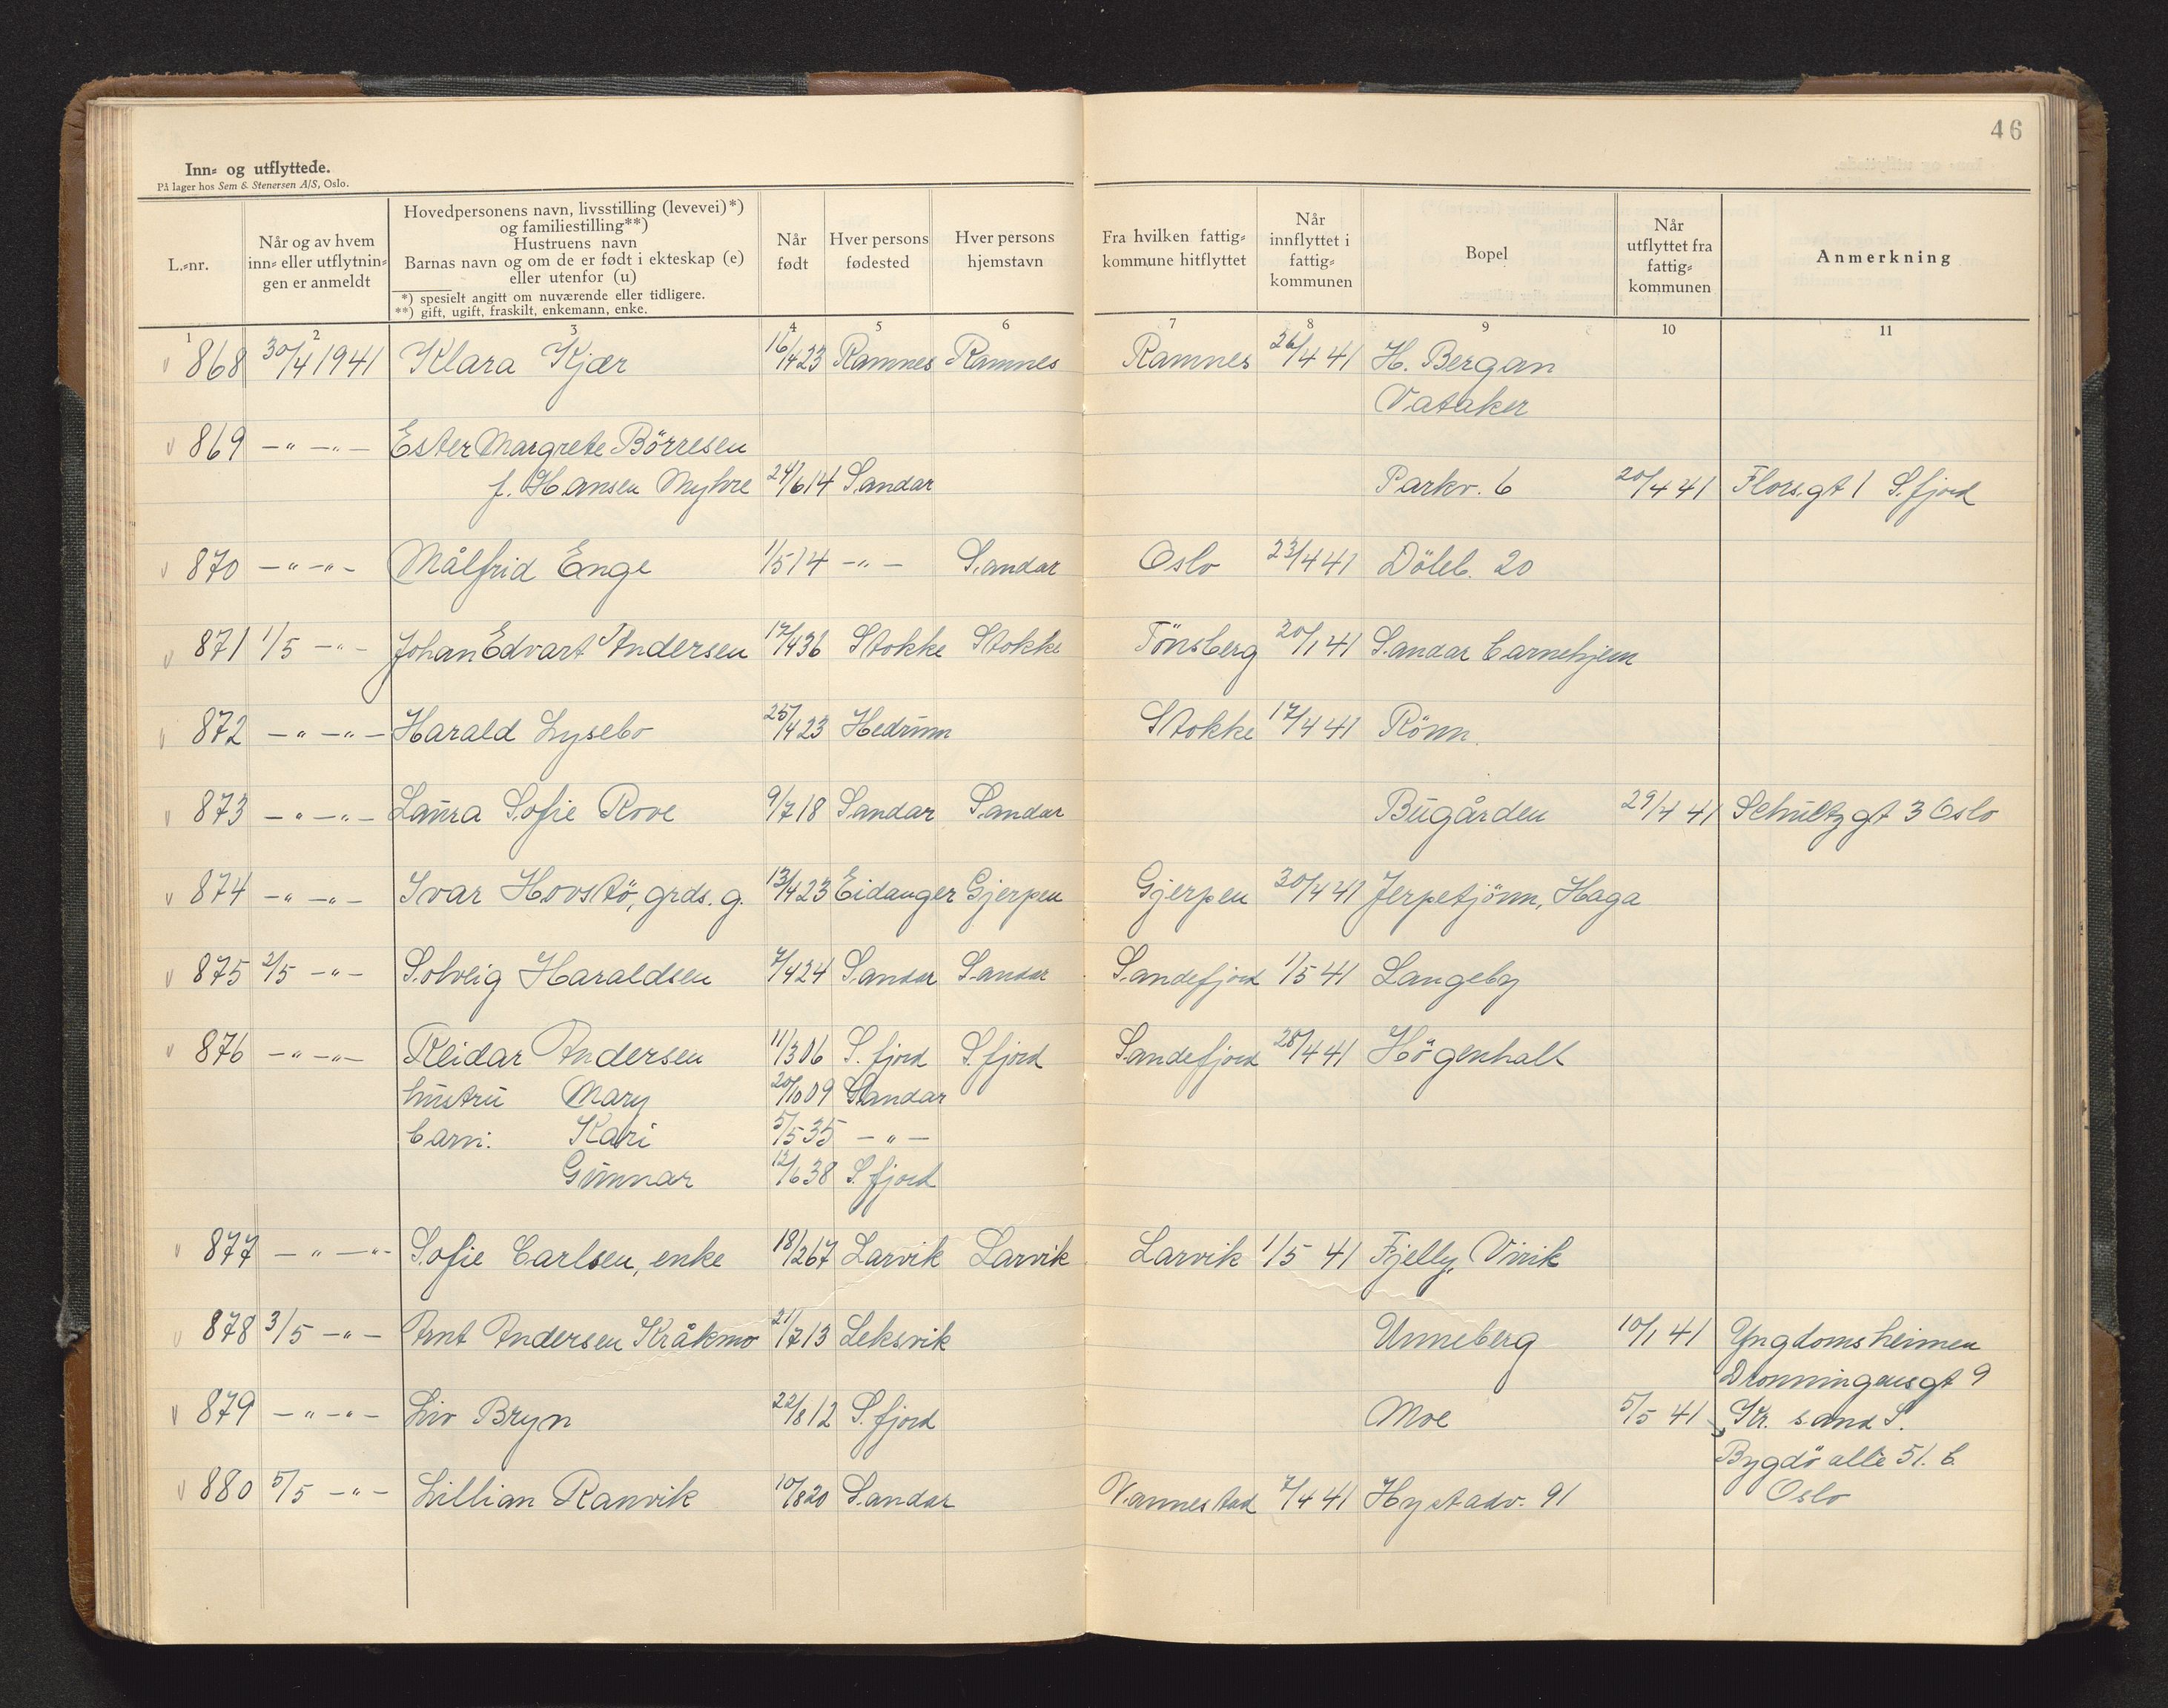 46
Inn= og utflyttede.
På lager hos Sem & Stenersen A/S, Oslo.
L.=nr.
Når og av hvem
inn= eller utflytnin=
gen er anmeldt
Hovedpersonens navn, livsstilling (levevei)*)
og familiestilling**)
Hustruens navn
Barnas navn og om de er født i ekteskap (e)
eller utenfor (u)
*) spesielt angitt om nuværende eller tidligere.
**) gift, ugift, fraskilt, enkemann, enke.
Når
født
Hver persons
fødested
Hver persons
hjemstavn
Fra hvilken fattig=
kommune hitflyttet
Når
innflyttet i
fattig=
kommunen
Bopel
Når
utflyttet fra
fattig=
kommunen
Anmerkning
1 2 3 4 5 6 7 8 9 10 11
868 30/4 1941 Klara Kjær 16/4 23 Ramnes Ramnes Ramnes 26/4 41 H. Bergan
Vataker
869 –"– –"– Ester Margrete Börresen
f. Hansen Myhre 24/6 14 Sandar Parkv. 6 20/4 41 Flors.gt 1 S.fjord
870 –"– –"– Målfrid Enge 1/5 14 –"– Sandar Oslo 23/4 41 Döleb. 20
871 1/5 –"– Johan Edvart Andersen 17/4 36 Stokke Stokke Tönsberg 20/1 41 Sandar barnehjem
872 –"– –"– Harald Lysebo 25/4 23 Hedrum Stokke 17/4 41 Rönn
873 –"– –"– Laura Sofie Rove 9/7 18 Sandar Sandar Bugården 29/4 41 Schultzgt 3 Oslo
874 –"– –"– Ivar Hovstö, grds. g. 13/4 23 Eidanger Gjerpen Gjerpen 30/4 41 Jerpetjönn, Haga
875 2/5 –"– Solveig Haraldsen 7/4 24 Sandar Sandar Sandefjord 1/5 41 Langeby
876 –"– –"– Reidar Andersen 11/3 06 S. fjord S. fjord Sandefjord 28/4 41 Högenhall
hustru Mary 20/10 09 Sandar
barn: Kari 5/5 35 –"–
Gunnar 12/6 38 S. fjord
877 –"– –"– Sofie Carlsen, enke 18/2 67 Larvik Larvik Larvik 1/5 41 Fjelly, Virik
878 3/5 –"– Arnt Andersen Kråkmo 21/7 13 Leksvik Unneberg 10/1 41 Yngdomsheimen
Dronningensgt 9
879 –"– –"– Liv Bryn 22/8 12 S. fjord Moe 5/5 41 Kr. sand S.
Bygdö allé 51. b.
880 5/5 –"– Lillian Ranvik 10/8 20 Sandar Vannestad 7/4 41 Hystadv. 91 Oslo